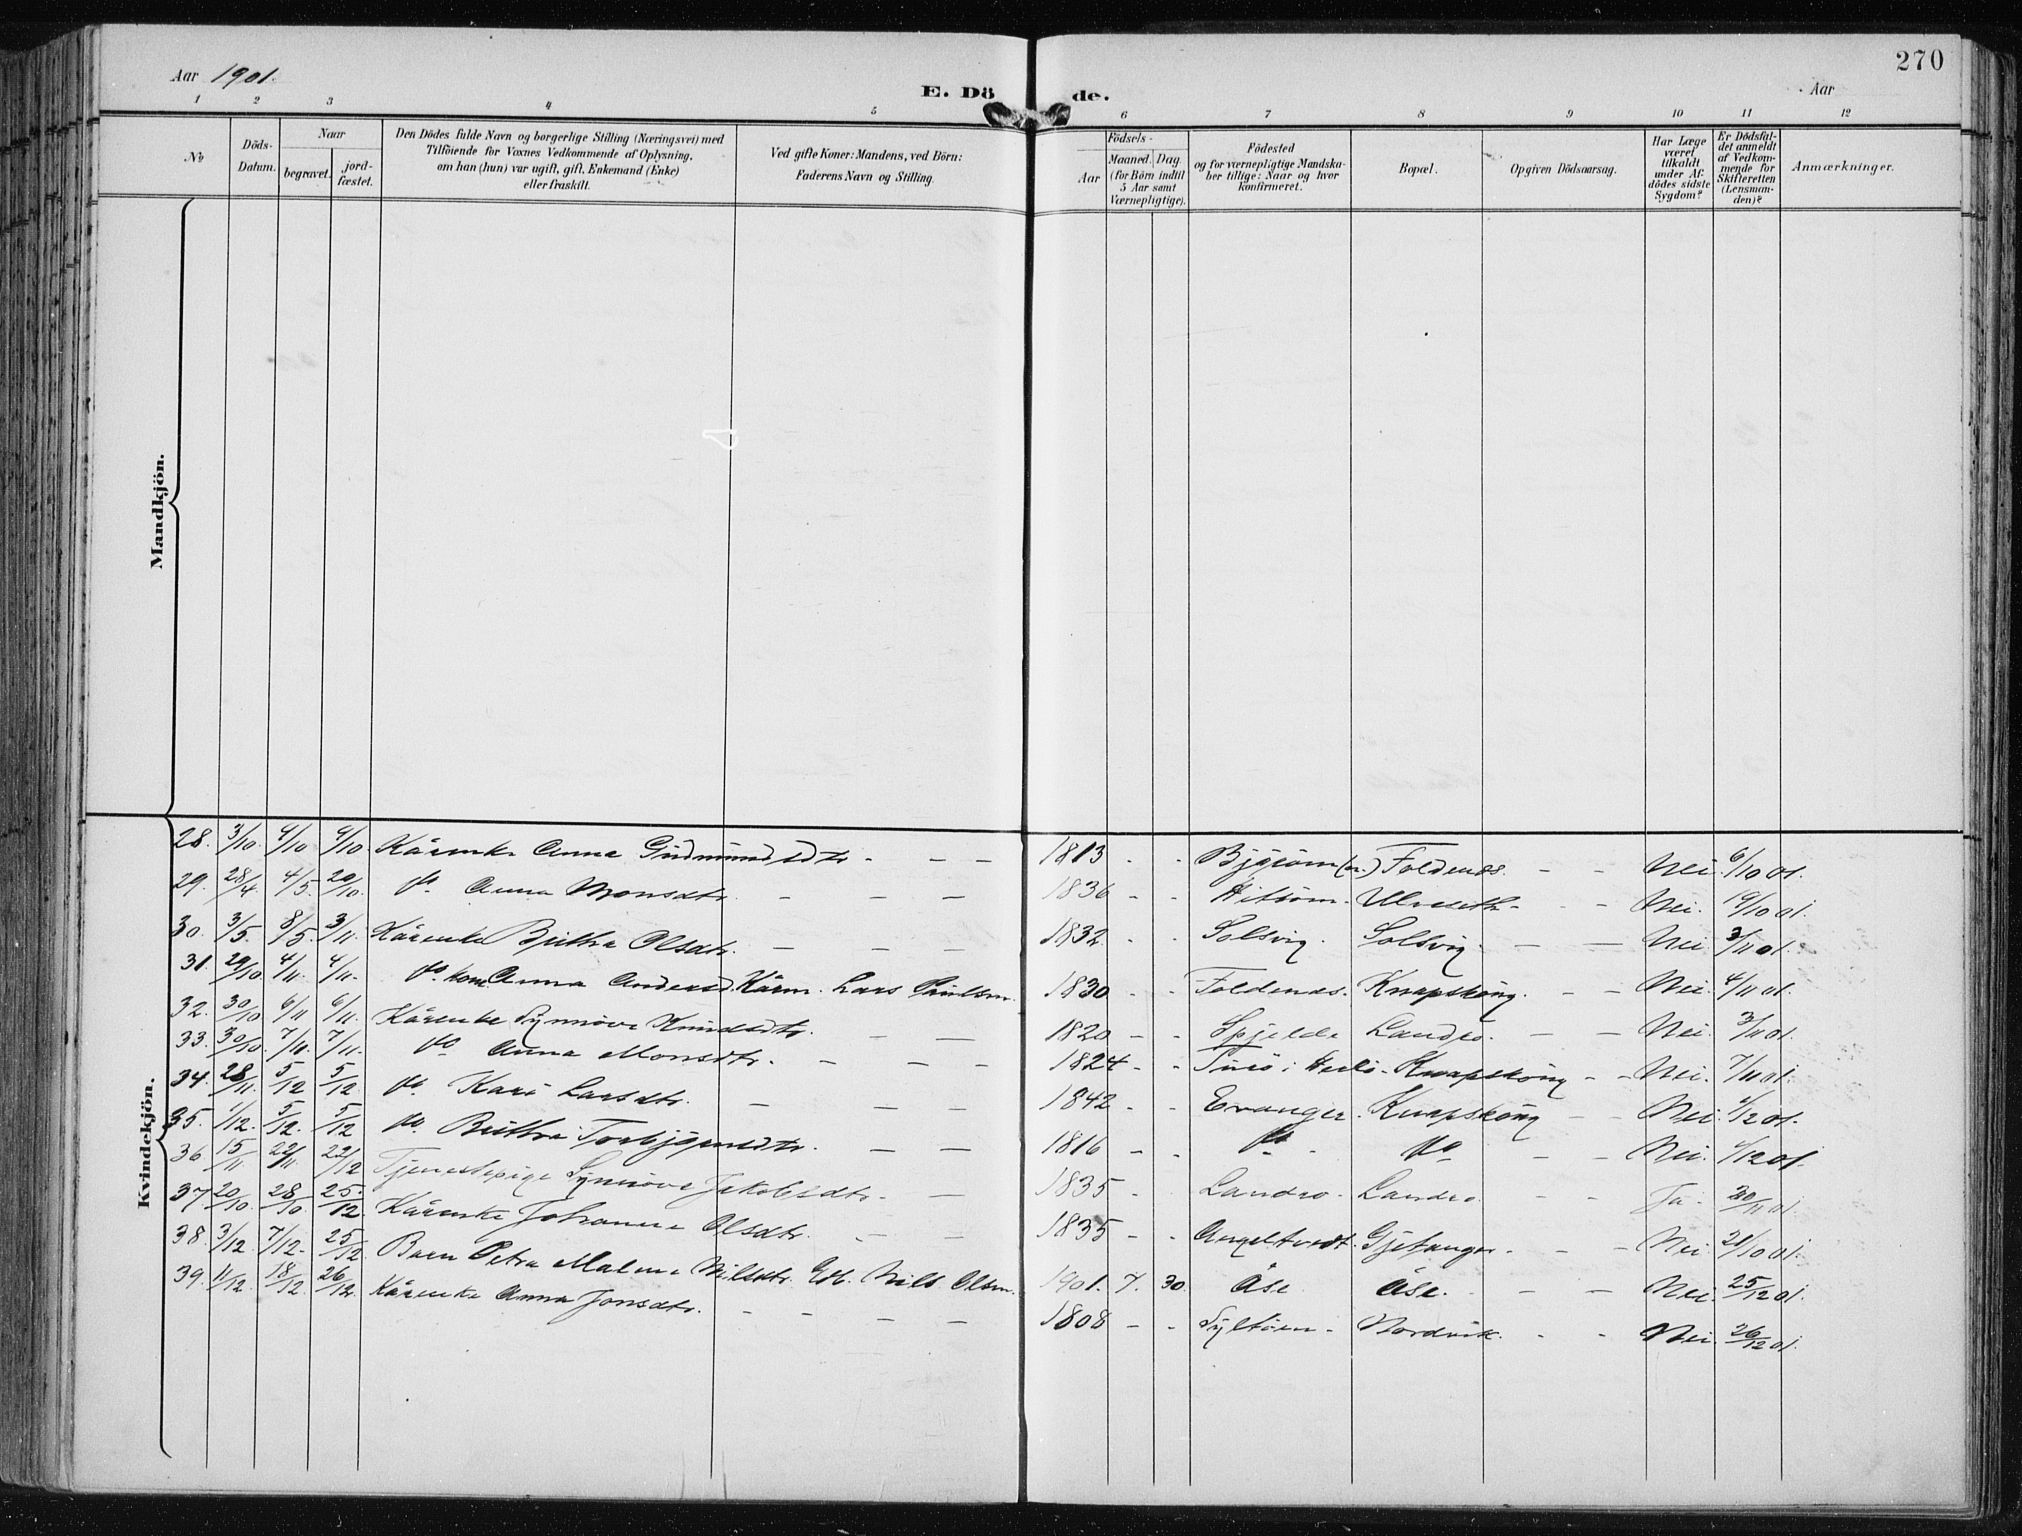 Aar 1901.
E. Dö de.
Aar
270
1 2 3 4 5 6 7 8 9 10 11 12
No
Döds-Datum.
Naar
begravet.
jord-fæstet.
Den Dödes fulde Navn og borgerlige Stilling (Næringsvei) med
Tilföiende for Voxnes Vedkommende af Oplysning,
om han (hun) var ugift, gift, Enkemand (Enke)
eller fraskilt.
Ved gifte Koner: Mandens, ved Börn:
Faderens Navn og Stilling.
Födsels-
Aar
Maaned. Dag.
(for Börn indtil
5 Aar samt
Værnepligtige).
Födested
og for værnepligtige Mandska-
ber tillige: Naar og hvor
konfirmeret.
Bopæl.
Opgiven Dödsaarsag.
Har Læge
været
tilkaldt
under Af-
dödes sidste
Sygdom?
Er Dödsfal-
det anmeldt
af Vedkom-
mende for
Skifteretten
(Lensman-
den)?
Anmærkninger.
Mandkjön.
Kvindekjön.
28. 3/10 4/10 4/10 Kårenke Anna Gudmundsdtr. - - - 1813 - - Foldenes. - - Nei. 6/10 01.
29. 28/4 4/5. 20/10. do Anna Monsdtr. - - - 1836 - - Ulveseth - - - Nei. 19/10 01.
30. 3/5. 8/5. 3/11. Kårenke Brithe Olsdtr. - - - 1832 - - Solsvig. Solsvig. - - Nei 3/11 01.
31. 29/10 4/11. 4/11. do. kone Anna Andersd. Kårm. Lars Paulsen. 1830 - - Foldenes. Knapskong. - - Nei. 4/11 01.
32. 30/10 6/11 6/11. Kårenke Synnöve Knudsdtr. - - 1820 - - Spjelde Landro. - - Nei. 3/11 01.
33. 30/10. 7/11. 7/11. do Anna Monsdtr. - - - 1824 - - Turö i Herlö - Knapskong - - Nei. 7/11 01.
34. 28/11. 5/12 5/12 do. Kari Larsdtr. - - - 1842 - - Evanger. Knapskong - - Nei. 4/12 01.
35. 1/12. 5/12. 5/12 do. Brithe Torbjörnsdtr. - - 1816 - - do - do - - Nei. 4/12 01.
36 15/11 22/11 22/12 Tjenestepige Synnöve Jakobsdtr. - - 1835 - Landro. Landro. - - Ja. 30/11 01.
37 20/10. 28/10 25/12 Kårenke Johanne Olsdtr. - - - 1835 - - Angeltvedt. Gjetanger. - - Nei. 21/10 01.
38. 3/12. 7/12. 25/12 Barn Petra Malene Nilsdtr. Gbr. Nils Olsen. 1901. 7. 30. Åse Åse. - - Nei. 25/12 01.
39. 11/12 18/12. 26/12. Kårenke Anna Jonsdtr. - - - - 1808 - - Syltöen. Nordvik. - - Nei. 26/12 01.